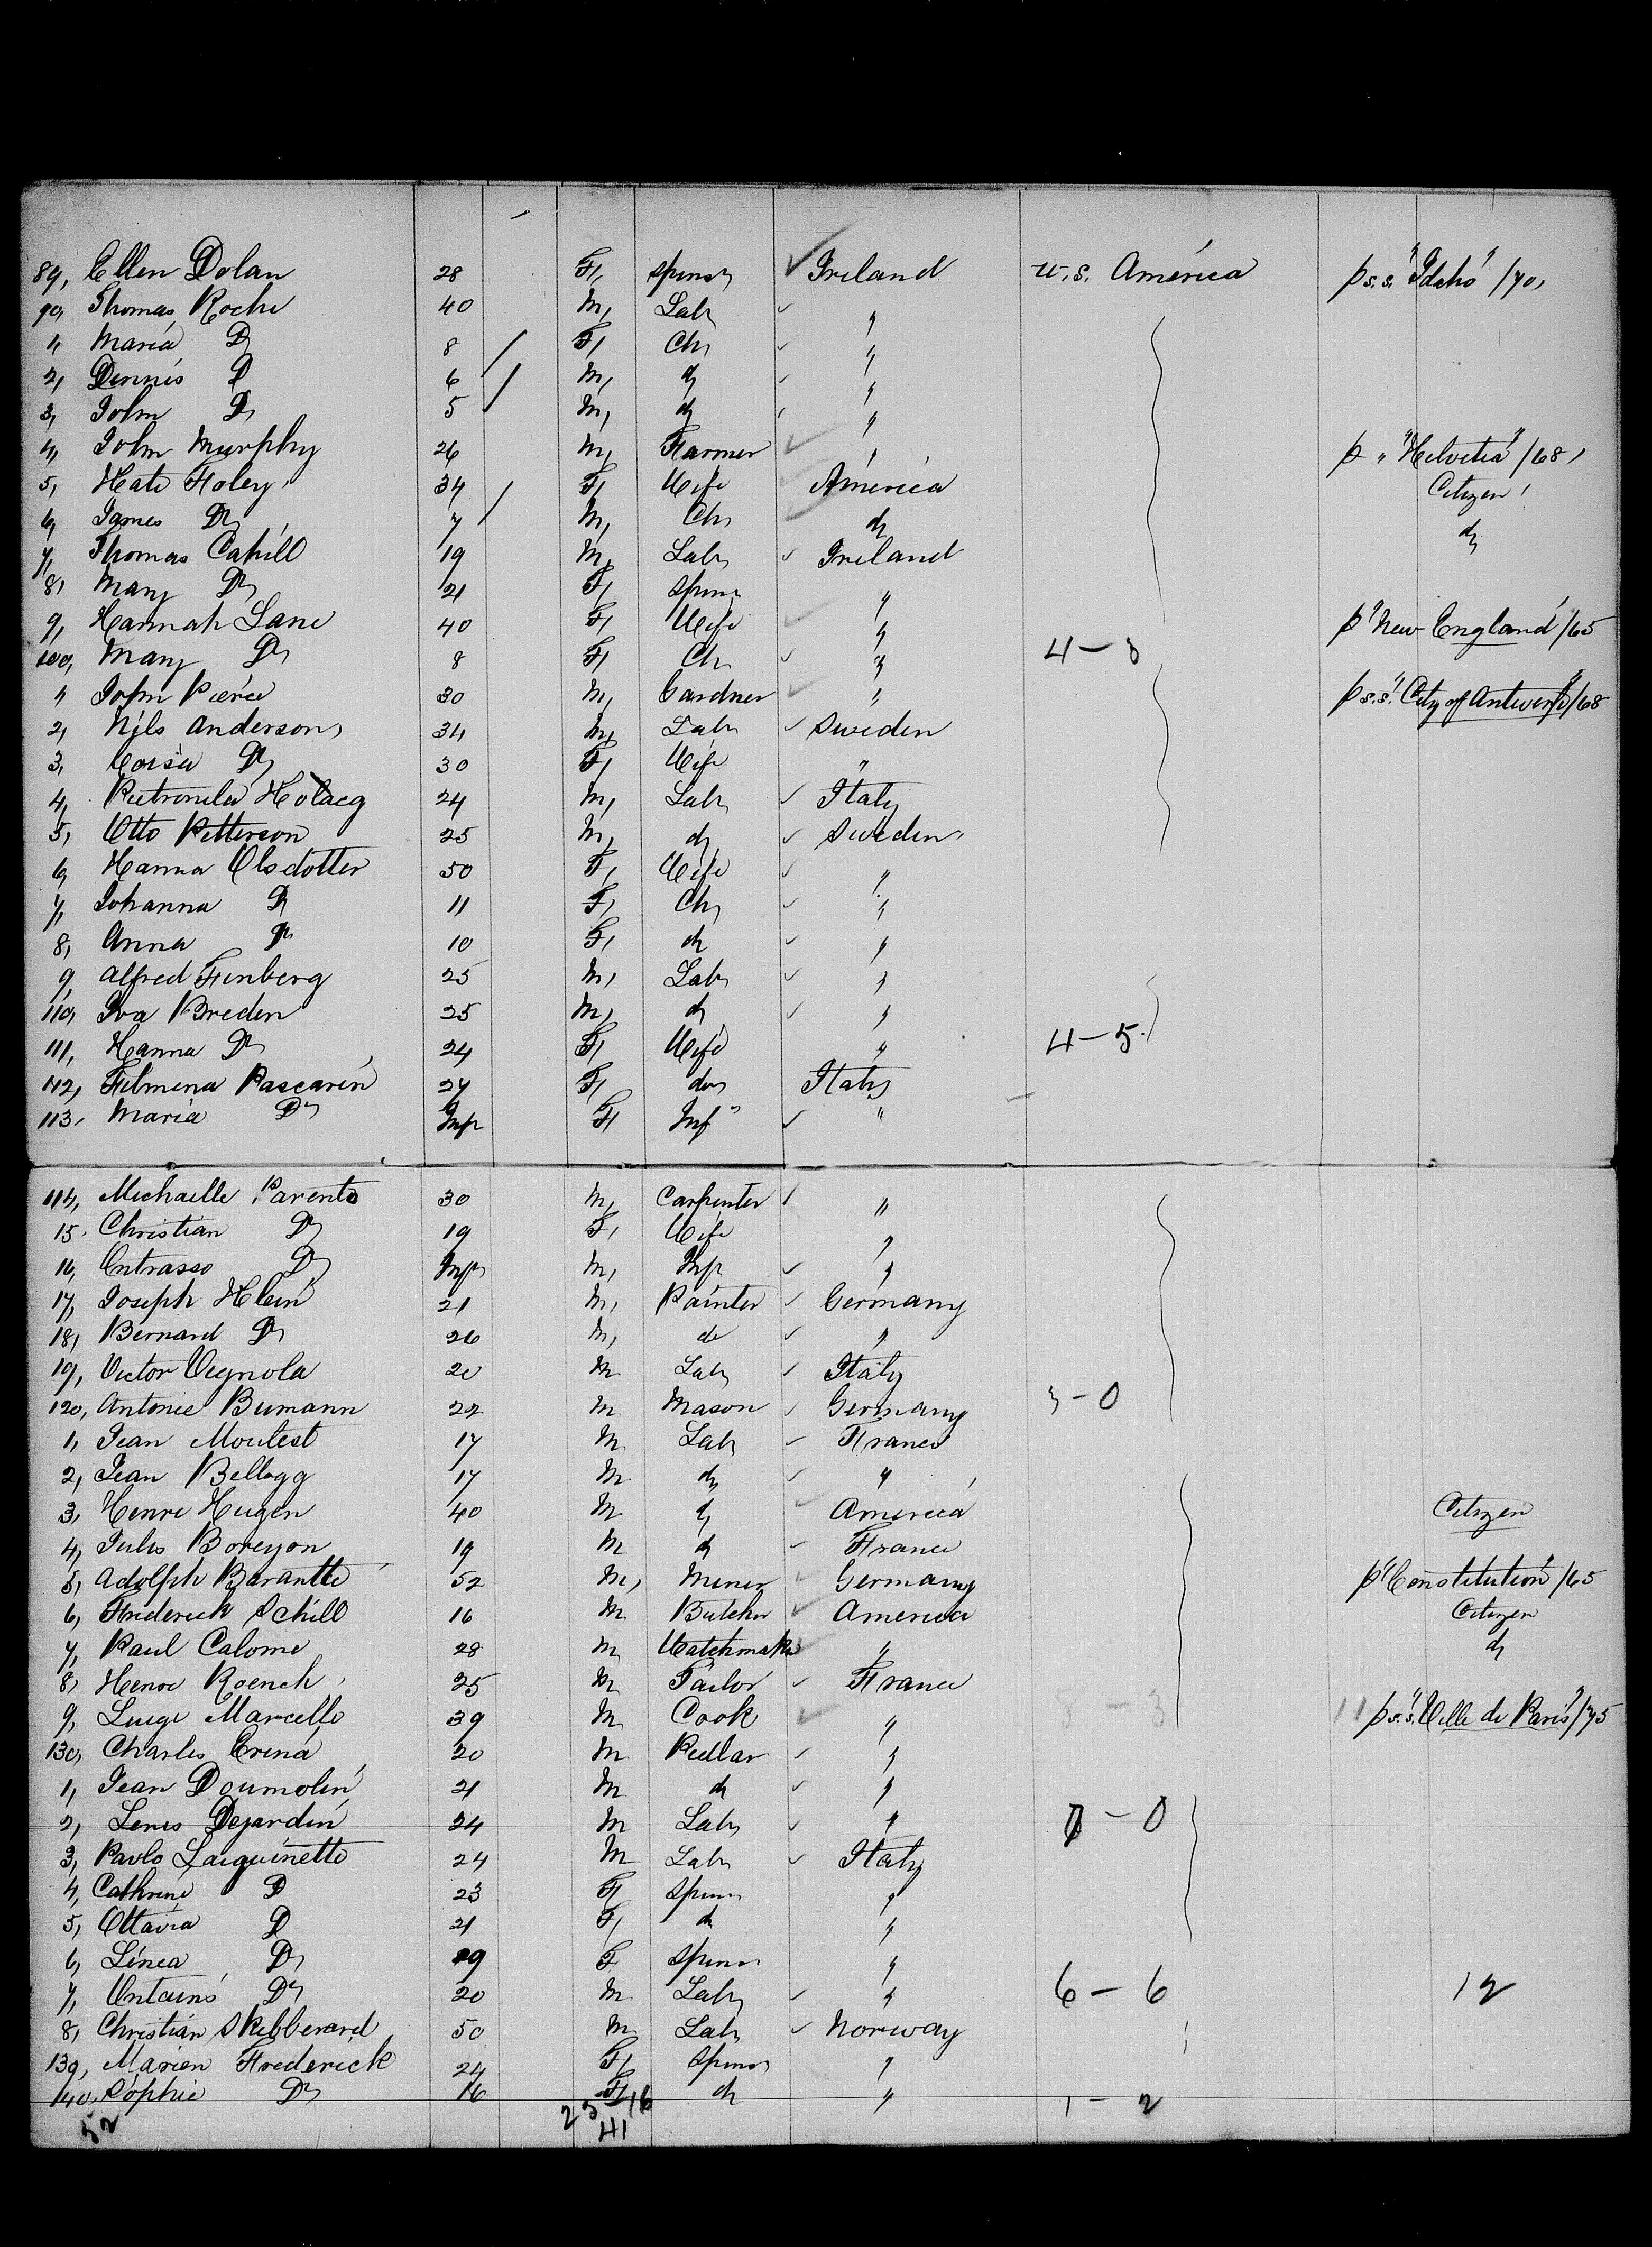 89, Ellen Dolan 28 F, Spinsr Ireland U.S. America p s.s. "Idaho" /70,
90, Thomas Roche 40 M, Labr "
1, Maria Do 8 F, Ch, "
2, Dennis Do 6 M, do "
3, John Do 5 M, do "
4, John Murphy 26 M, Farmer " p " "Helvetia" /68,
5, Kate Foley 34 F, Wife America Citizen
6, James Do 7 M, Ch, do do
7, Thomas Cahill 19 M, Labr Ireland
8, Mary Do 21 F, Spinr "
9, Hannah Lane 40 F, Wife " p "New England"/65
100, Mary Do 8 F, Ch, " 4 - 8
" John Pierce 30 M, Gardner " p s.s. "City of Antwerp"/68
2, Nils Anderson, 34 M, Labr Sweden
3, Do 30 F, Wife "
4, 24 M, Labr Italy
5, Otto Petterson 25 M, do Sweden
6, Hanna Olsdotter 50 F, Wife "
7, Johanna Do 11 F, Ch, "
8, Anna Do 10 F, do "
9, Alfred Finberg 25 M, Labr "
110, Iva Breden 25 M, do "
111, Hanna Do 24 F, Wife " 4 - 5
112, Filmena Pascarin 27 F, do Italy
113, Maria Do Inft F, Inf "
114, Michaelle Parento 30 M, Carpenter "
15, Christian Do 19 F, Wife "
16, Do Inft M, Inf "
17, Joseph Klein 21 M, Painter Germany
18, Bernard Do 26 M, do "
19, Victor Vegnola 20 M Labr Italy
120, Antonie Bumann 22 M Mason Germany 3 - 0
1, Jean Moutest 17 M Labr France
2, Jean Bellogg 17 M do "
3, Henri Hugen 40 M do America Citizen
4, Jules Boreyon 19 M do France
5, Adolph Barantte 52 M, Miner Germany p "Constitution"/65
6, Frederick Schill 16 M Butcher America Citizen
7, Paul Calome 28 M Watchmaker " do
8, Henri Roench 25 M Tailor France
9, Luigi Marcello 39 M Cook " 8 - 3 11 p s.s. "Ville de Paris"/75
130, Charles Crena 20 M Pedlar "
1, Jean Doumolin 21 M do "
2, Dejardin 24 M Labr " 7 - 0
3, Pavlo Laiguinette 24 M Labr Italy
4, Cathrine Do 23 F, Spinr "
5, Ottavia Do 21 F, do "
6, Linea Do 19 F Spinr "
7, Do 20 M Labr " 6 - 6 12
8, Christian Skibberard 50 M Labr Norway
139, Marien Frederick 24 F, Spinsr "
140, Sophie Do 16 F, do " 1 - 2
52 25 16
41